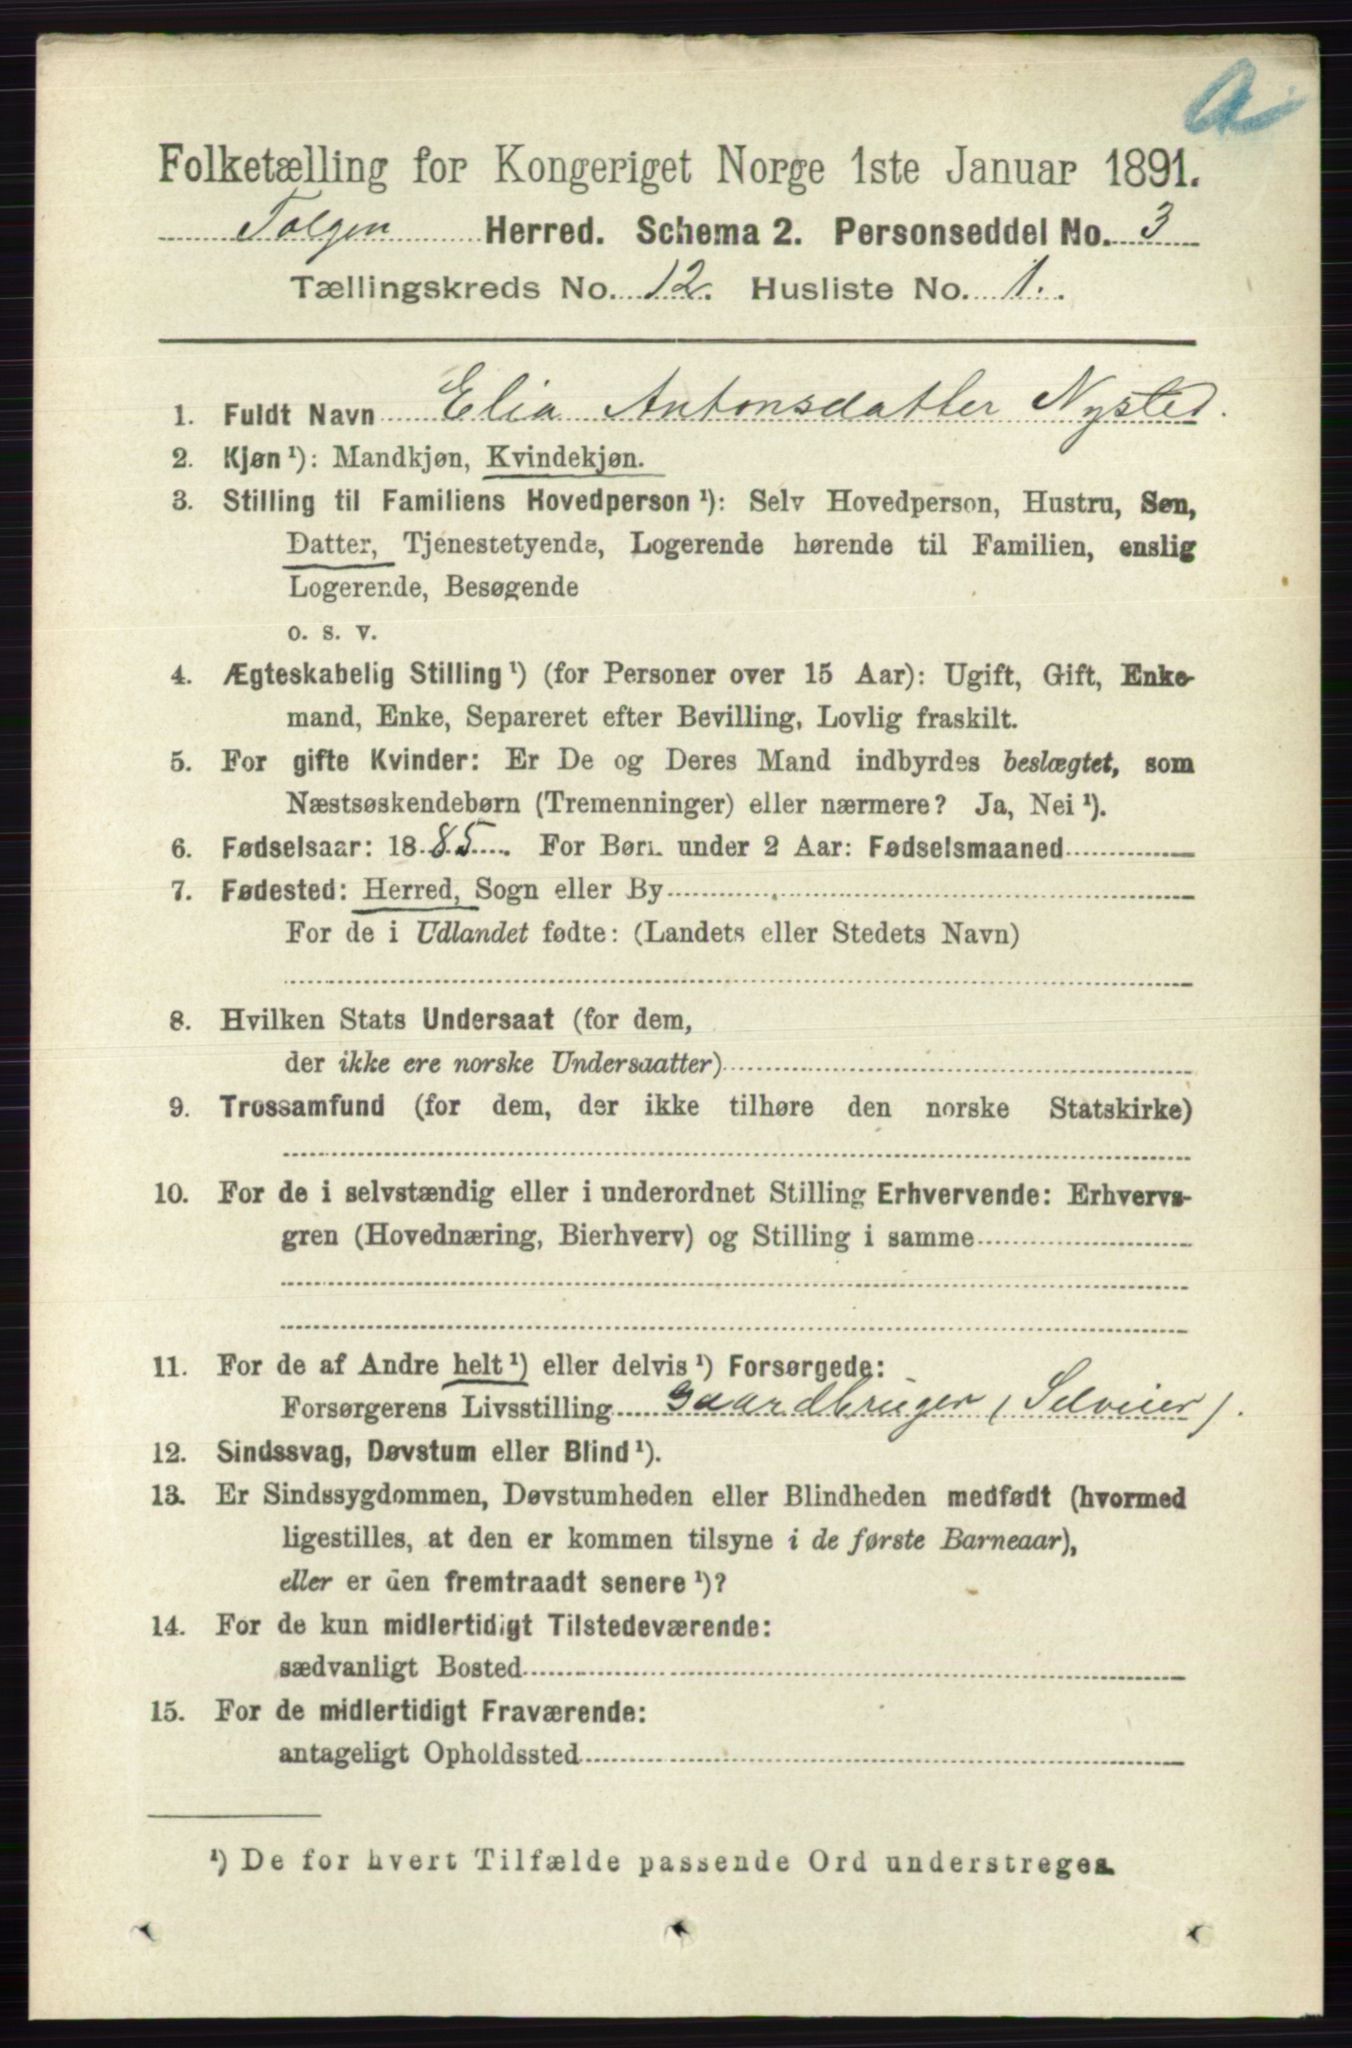 a
Folketælling for Kongeriget Norge 1ste Januar 1891.
Tolgen Herred. Schema 2. Personseddel No. 3
Tællingskreds No. 12. Husliste No. 1.
1. Fuldt Navn Elia Antonsdatter Nysted.
2. Kjøn ¹): Mandkjøn, Kvindekjøn.
3. Stilling til Familiens Hovedperson ¹): Selv Hovedperson, Hustru, Søn,
Datter, Tjenestetyende, Logerende hørende til Familien, enslig
Logerende, Besøgende
o. s. v.
4. Ægteskabelig Stilling ¹) (for Personer over 15 Aar): Ugift, Gift, Enke-
mand, Enke, Separeret efter Bevilling, Lovlig fraskilt.
5. For gifte Kvinder: Er De og Deres Mand indbyrdes beslægtet, som
Næstsøskendebørn (Tremenninger) eller nærmere? Ja, Nei ¹).
6. Fødselsaar: 1885. For Børn under 2 Aar: Fødselsmaaned
7. Fødested: Herred, Sogn eller By
For de i Udlandet fødte: (Landets eller Stedets Navn)
8. Hvilken Stats Undersaat (for dem,
der ikke ere norske Undersaatter)
9. Trossamfund (for dem, der ikke tilhøre den norske Statskirke)
10. For de i selvstændig eller i underordnet Stilling Erhvervende: Erhvervs-
gren (Hovednæring, Bierhverv) og Stilling i samme
11. For de af Andre helt ¹) eller delvis ¹) Forsørgede:
Forsørgerens Livsstilling Gaardbruger (Selveier).
12. Sindssvag, Døvstum eller Blind ¹).
13. Er Sindssygdommen, Døvstumheden eller Blindheden medfødt (hvormed
ligestilles, at den er kommen tilsyne i de første Barneaar),
eller er den fremtraadt senere ¹)?
14. For de kun midlertidigt Tilstedeværende:
sædvanligt Bosted
15. For de midlertidigt Fraværende:
antageligt Opholdssted
¹) De for hvert Tilfælde passende Ord understreges.